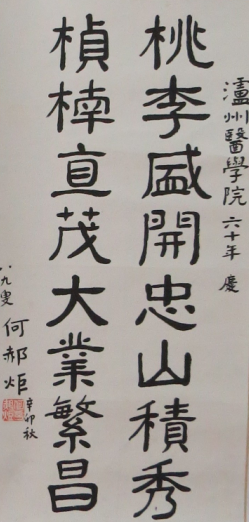 瀘州醫學院六十年慶
桃李盛開忠山積秀
楨楠直茂大業繁昌
八九叟
何郝炬
辛卯秋